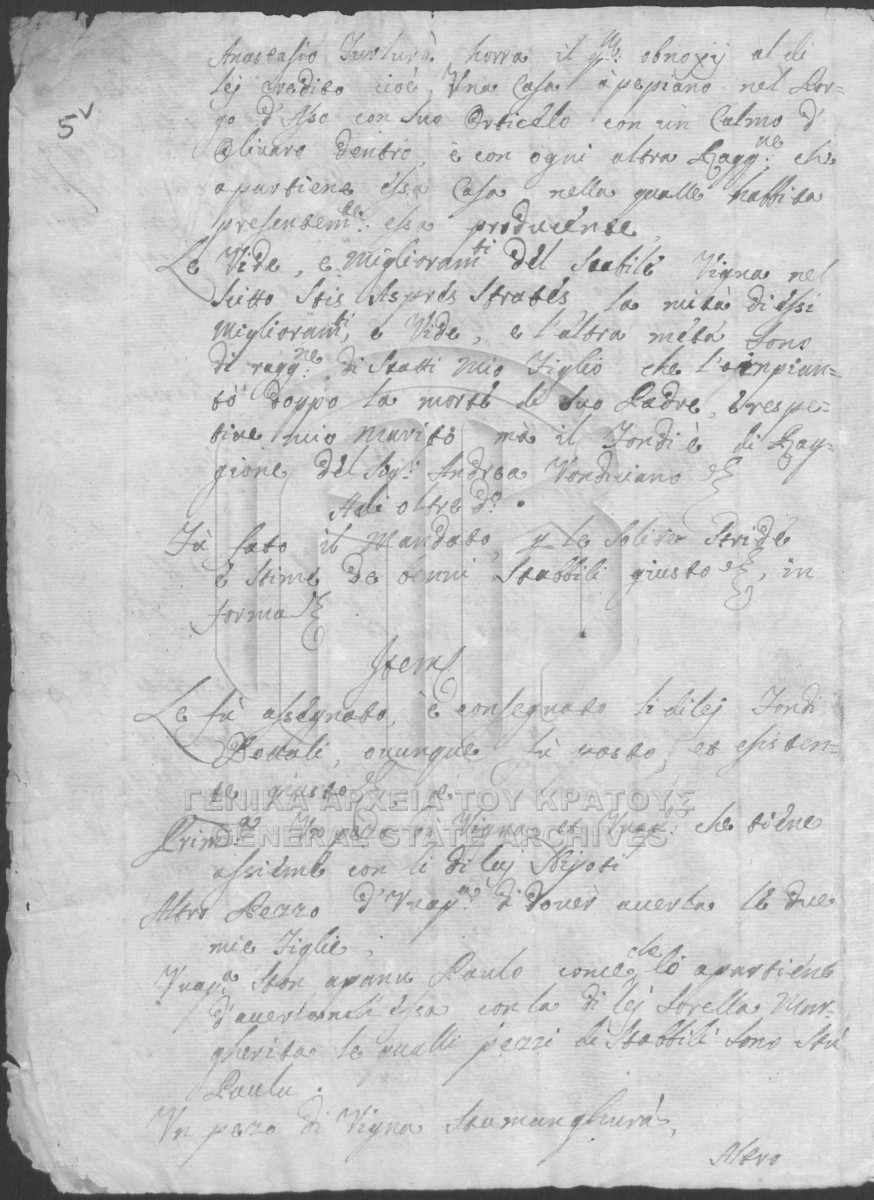 5v
Anastasio Turlurà, horra il obnoxij al di
lej credito cioè, Una Casa à pepiano nel Bor-
go d'Aso con suo Orticelo con un Calmo d'
Olivaro dentro, è con ogni altra Ragg.ne che
apartiene essa Casa nella qualle habbita
presentem.te essa producente,
Le Vide, e miglioram.ti del stabile Vigna nel
sitto Stis Aspres Strates la mità di essi
miglioram.ti, e Vide, e l'altra metà sono
di ragg.ne di Statti mio Figlio che l'à inpian=
tò doppo la morte di suo Padre, è respe-
tive mio marito mà il Fondi è di Rag-
gione del Sig.r Andrea Vondiciano
Adi oltred.o
Fù fato il Mandato, p le solite Stride
è stime de benni stabbili giusto, in
forma
Item
Le fù assegnato, è consegnato li di lej Fondi
Dottali, ovunque sù posto, et esisten=
te giusto è
Prim.a Un pezo di Vigna et che tiene
assieme con li di lej Nipoti
Altro Pezzo d' d'Doner averla le due
mie Figlie,
ston apanu Paulo come che lo apartiene
d'averla essa con la di lej Sorella Mar-
gherita le qualli pezzi di Stabbili sono Stù
Paulu.
Un pezo di Vigna
Altro
ΓΕΝΙΚΑ ΑΡΧΕΙΑ ΤΟΥ ΚΡΑΤΟΥΣ
GENERAL STATE ARCHIVES